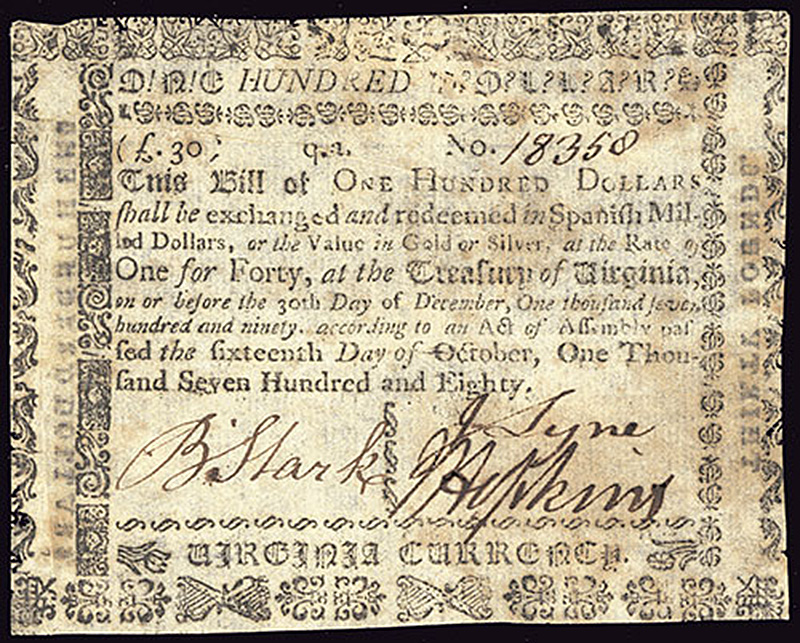 O!N!E HUNDRED D?L?L?A?R?S
(£.30) q.a. No. 18358
This Bill of ONE HUNDRED DOLLARS
ſhall be exchanged and redeemed in Spaniſh Mil-
led Dollars, or the Value in Gold or Silver, at the Rate of
One for Forty, at the Treaſury of Virginia,
on or before the 30th Day of December, One thouſand ſeven
hundred and ninety. according to an Act of Aſſembly paſ
ſed the ſixteenth Day of October, One Thou-
ſand Seven Hundred and Eighty.
J Tyne
B. Stark
Hopkins
VIRGINIA CURRENCY.